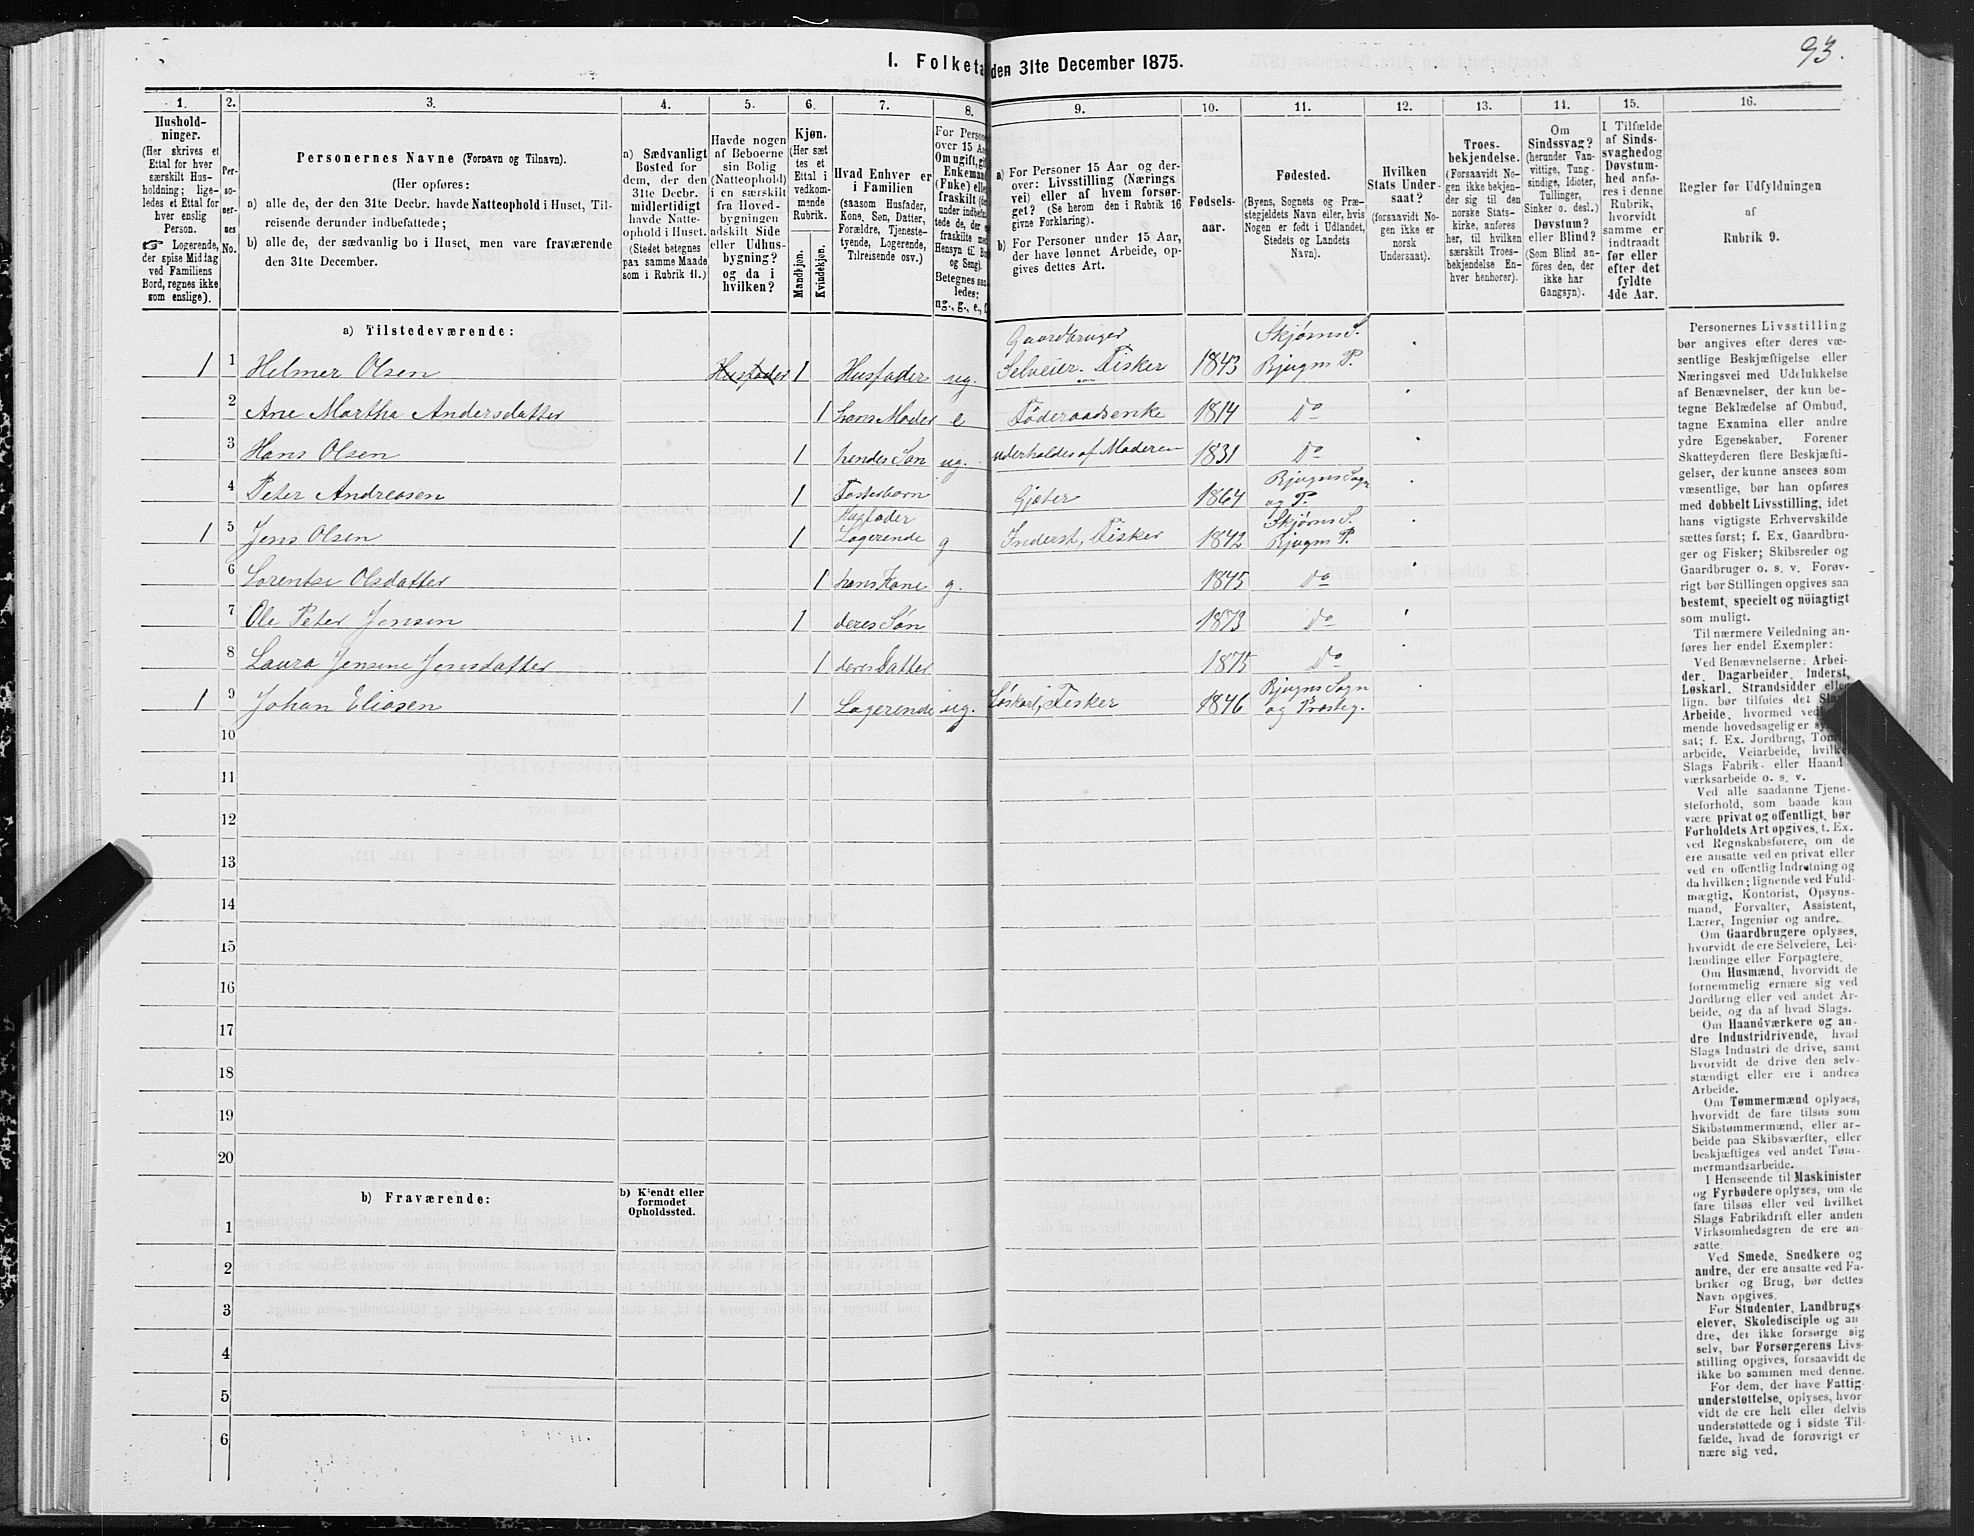 93.
1. Folketa den 31te December 1875.
1. 2. 3. 4. 5. 6. 7. 8. 9. 10. 11. 12. 13. 14. 15. 16.
Husholdninger.
(Her skrives et
Ettal for hver
særskilt Husholdning;
ligeledes et Ettal for
hver enslig
Person.
☞ Logerende,
der spise Middag
ved Familiens
Bord, regnes ikke
som enslige).
Personernes No.
Personernes Navne (Fornavn og Tilnavn).
(Her opføres:
a) alle de, der den 31te Decbr. havde Natteophold i Huset, Tilreisende derunder indbefattede;
b) alle de, der sædvanlig bo i Huset, men vare fraværende
den 31te December.
a) Sædvanligt
Bosted for
dem, der den
31te Decbr.
midlertidigt
havde Natteophold i Huset.
(Stedet betegnes
paa samme Maade
som i Rubrik 11.)
Havde nogen
af Beboerne
sin Bolig
(Natteophold)
i en særskilt
fra Hovedbygningen
adskilt Side
eller Udhusbygning?
og da i
hvilken?
Kjøn.
(Her sættes et
Ettal i
vedkommende
Rubrik.
Mandkjøn.
Kvindekjøn.
Hvad Enhver er
i Familien
(saasom Husfader,
Kone, Søn, Datter,
Forældre, Tjenestetyende, Logerende,
Tilreisende osv.)
For Persone
over 15 Aa
Om ugift, gif
Enkemand
(Enke) elle
fraskilt (de
under indbefat
tede de, der e
fraskilte me
Hensyn til Bo
og Seng).
Betegnes saa
ledes:
ug., g., e., f
a) For Personer 15 Aar og derover: Livsstilling (Næringsvei) eller af hvem forsørget? (Se herom den i Rubrik 16
givne Forklaring).
b) For Personer under 15 Aar,
der have lønnet Arbeide, opgives dettes Art.
Fødselsaar.
Fødested.
(Byens, Sognets og Præstegjeldets Navn eller, hvis
Nogen er født i Udlandet,
Stedets og Landets
Navn).
Hvilken
Stats Undersaat?
(forsaavidt Nogen ikke er
norsk
Undersaat).
Troesbekjendelse.
(Forsaavidt Nogen ikke bekjender sig til den
norske Statskirke, anføres
her, til hvilken
særskilt Troesbekjendelse Enhver henhører).
Om
Sindssvag?
(herunder Vanvittige, Tungsindige, Idioter,
Tullinger,
Sinker o. desl.)
Døvstum?
eller Blind?
(Som Blind anføres den, der
ikke har
Gangsyn).
I Tilfælde
af Sindssvaghed og
Døvstumhed anføres i denne
Rubrik,
hvorvidt
samme er
indtraadt
før eller
efter det
fyldte
4de Aar.
Regler for Udfyldningen
af
Rubrik 9.
a) Tilstedeværende:
1 1 Helmer Olsen Husfader 1 Husfader ug. Gaardbruger Selveier. Fisker 1843 Skjørns S. Bjugns P.
2 Ane Martha Andersdatter 1 hans Moder e Føderaadsenke 1814 Do
3 Hans Olsen 1 hendes Søn ug. underholdes af Moderen 1831 Do
4 Peter Andreasen 1 Fosterbarn Gjæter 1864 Bjugns Sogn og P.
1 5 Jens Olsen 1 Husfader Logerende g Inderst, Fisker 1842 Skjørns S. Bjugns P.
6 Lorentse Olsdatter 1 hans Kone g. 1845 Do
7 Ole Peter Jensen 1 deres Søn 1873 Do
8 Laura Jensine Jensdatter 1 deres Datter 1875 Do
1 9 Johan Eliasen 1 Logerende ug. Løskarl, Fisker 1846 Bjugns Sogn og Præsteg.
10
11
12
13
14
15
16
17
18
19
20
b) Fraværende:
b) Kjendt eller
formodet
Opholdssted.
1
2
3
4
5
6
Personernes Livsstilling
bør angives efter deres væsentlige Beskjæftigelse eller
Næringsvei med Udelukkelse
af Benævnelser, der kun betegne Beklædelse af Ombud,
tagne Examina eller andre
ydre Egenskaber. Forener
Skatteyderen flere Beskjæftigelser, der kunne ansees som
væsentlige, bør han opføres
med dobbelt Livsstilling, idet
hans vigtigste Erhvervskilde
sættes først; f. Ex. Gaardbruger og Fisker; Skibsreder og
Gaardbruger o. s. v. Forøvrigt bør Stillingen opgives saa
bestemt, specielt og nøiagtigt
som muligt.
Til nærmere Veiledning anføres her endel Exempler:
Ved Benævnelserne: Arbeider, Dagarbeider, Inderst,
Løskarl, Strandsidder eller
lign. bør tilføies det Slags
Arbeide, hvormed vedkommende hovedsagelig er syssel-
sat; f. Ex. Jordbrug, Tømmerarbeide, Veiarbeide, hvilket
Slags Fabrik- eller Haandværksarbeide o. s. v.
Ved alle saadanne Tjenesteforhold, som baade kan
være privat og offentligt, bør
Forholdets Art opgives, t. Ex.
ved Regnskabsførere, om de
ere ansatte ved en privat eller
ved en offentlig Indretning og
da hvilken; lignende ved Fuldmægtig, Kontorist, Opsynsmand, Forvalter, Assistent,
Lærer, Ingeniør og andre.
Om Gaardbrugere oplyses,
hvorvidt de ere Selveiere, Leilændinge eller Forpagtere.
Om Husmænd, hvorvidt de
fornemmelig ernære sig ved
Jordbrug eller ved andet Arbeide, og da af hvad Slags.
Om Haandværkere og andre Industridrivende, hvad
Slags Industri de drive, samt
hvorvidt de drive den selvstændigt eller ere i andres
Arbeide.
Om Tømmermænd oplyses,
hvorvidt de fare tilsøs som
Skibstømmermænd, eller arbeide paa Skibsværfter, eller
beskjæftiges ved andet Tømmermandsarbeide.
I Henseende til Maskinister
og Fyrbødere oplyses, om de
fare tilsøs eller ved hvilket
Slags Fabrikdrift eller anden
Virksomhedsgren de ere ansatte.
Ved Smede, Snedkere og
andre, der ere ansatte ved Fabriker og Brug, bør dettes
Navn opgives.
For Studenter, Landbrugselever, Skoledisciple og andre, der ikke forsørge sig
selv, bør Forsørgerens Livsstilling opgives, forsaavidt de
ikke bo sammen med denne.
For dem, der have Fattigunderstøttelse, oplyses, hvorvidt de ere helt eller delvis
understøttede og i sidste Tilfælde, hvad de forøvrigt ernære sig ved.